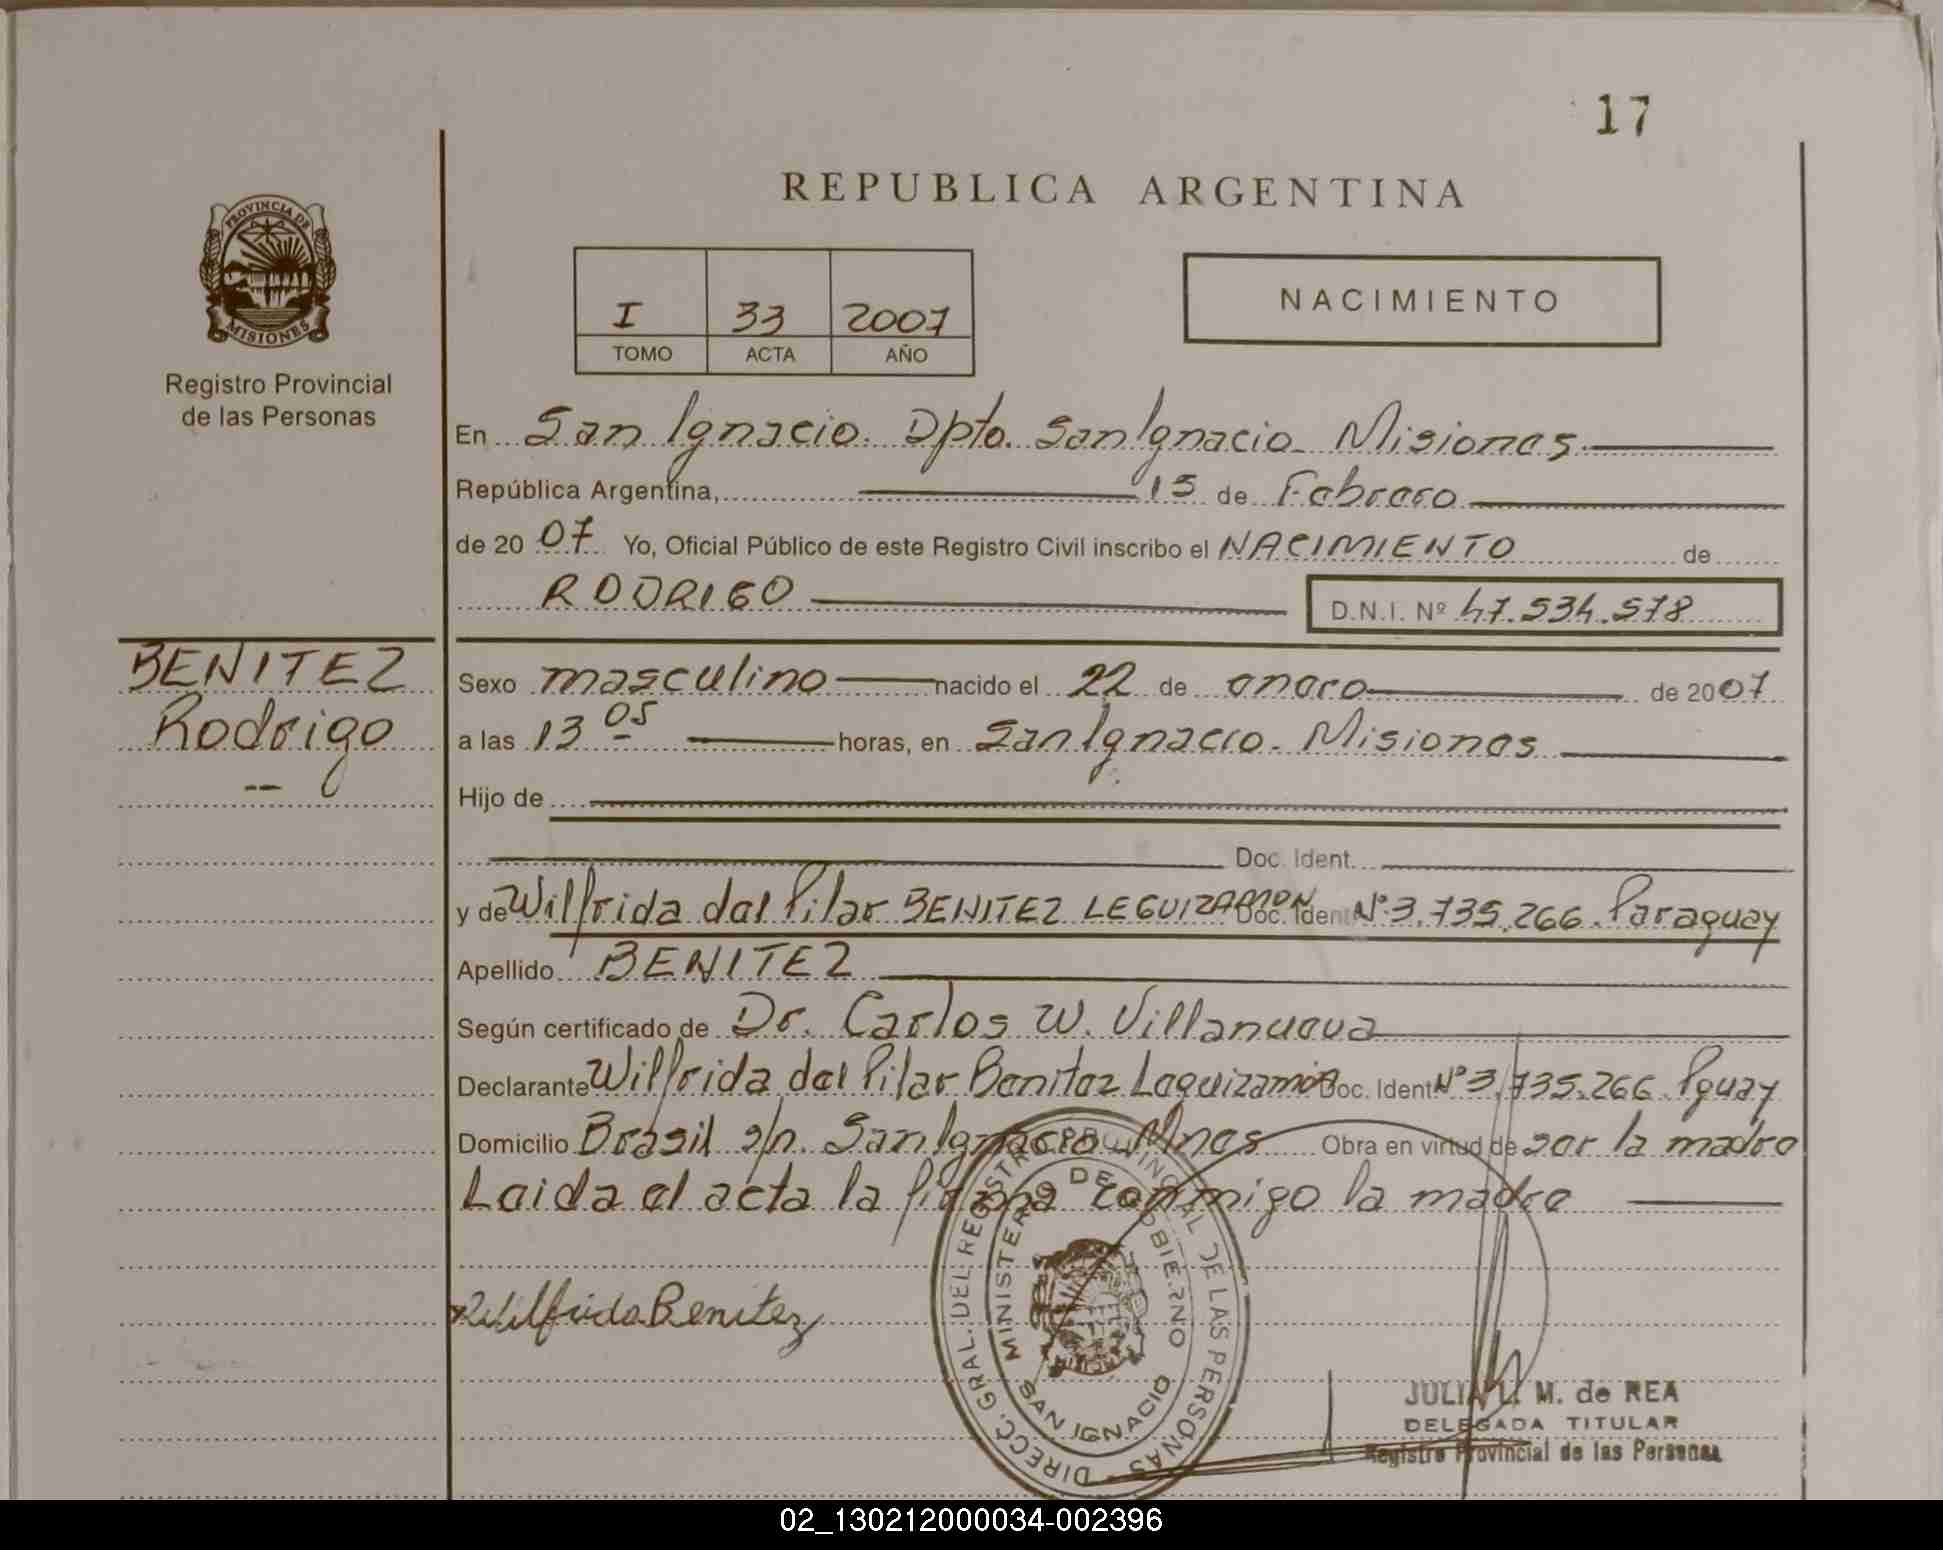 17
REPUBLICA ARGENTINA
PROVINCIA DE
MISIONES
Registro Provincial
de las Personas
I 33 2007
TOMO ACTA AÑO
NACIMIENTO
En San Ignacio. Dpto. San Ignacio. Misiones
República Argentina, 15 de Febrero
de 2007 Yo, Oficial Público de este Registro Civil inscribo el NACIMIENTO de
RODRIGO D.N.I. Nº 47.534.578
BENITEZ
Rodrigo
Sexo masculino nacido el 22 de enero de 2007
a las 13 05 horas, en San Ignacio. Misiones
Hijo de
Doc. Ident.
y de Wilfrida del Pilar BENITEZ LEGUIZAMON Doc. Ident Nº 3.735.266. Paraguay
Apellido BENITEZ
Según certificado de Dr. Carlos W. Villanueva
Declarante Wilfrida del Pilar Benitez Leguizamon Doc. Ident Nº 3.735.266. Pguay
Domicilio Brasil s/n. San Ignacio Mnes Obra en virtud de ser la madre
Leida el acta la firma conmigo la madre
Wilfrida Benitez
DIRECC. GRAL. DEL REGISTRO PROVINCIAL DE LAS PERSONAS
MINISTERIO DE GOBIERNO
SAN IGNACIO
JULIA L. M. de REA
DELEGADA TITULAR
Registro Provincial de las Personas
02_130212000034-002396